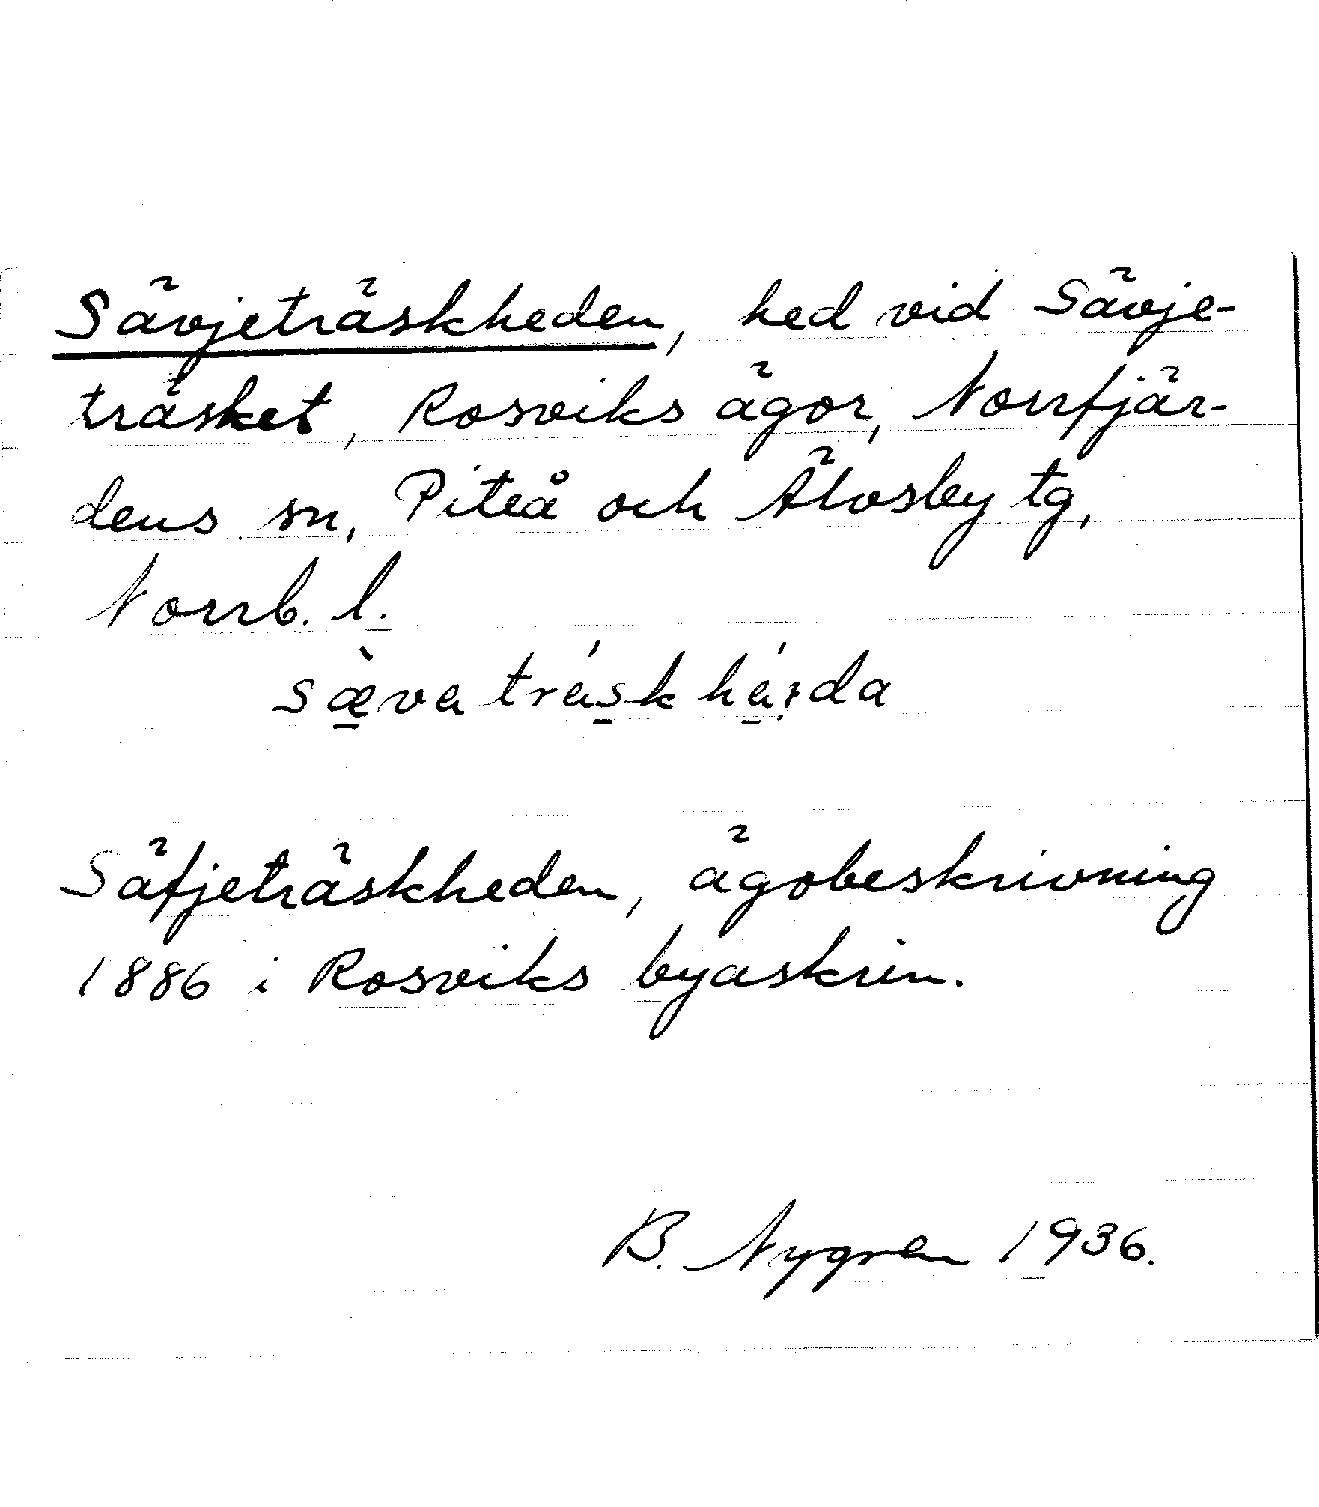 Sävjeträskheden, hed vid Sävje-
träsket, Rosviks ägor, Norrfjär-
dens sn, Piteå och Älvsby tg,
Norrb. l.
sæva trask hada
Säfjeträskheden, ägobeskrivning
1886 i Rosviks byaskrin.
B. Nygren 1936.